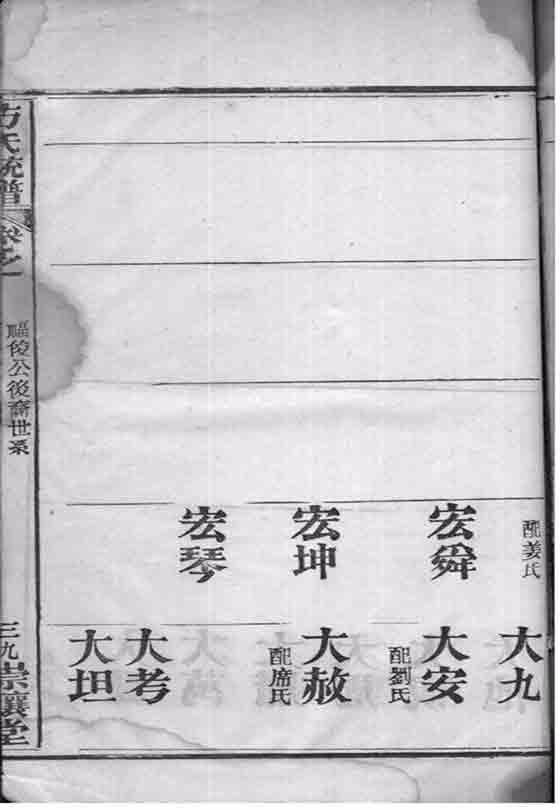 配姜氏
大九
宏舜
大安
配劉氏
宏坤
大赦
配席氏
宏琴
大考
大坦
方氏統譜
卷之一
福俊公後裔世系
三九
崇讓堂